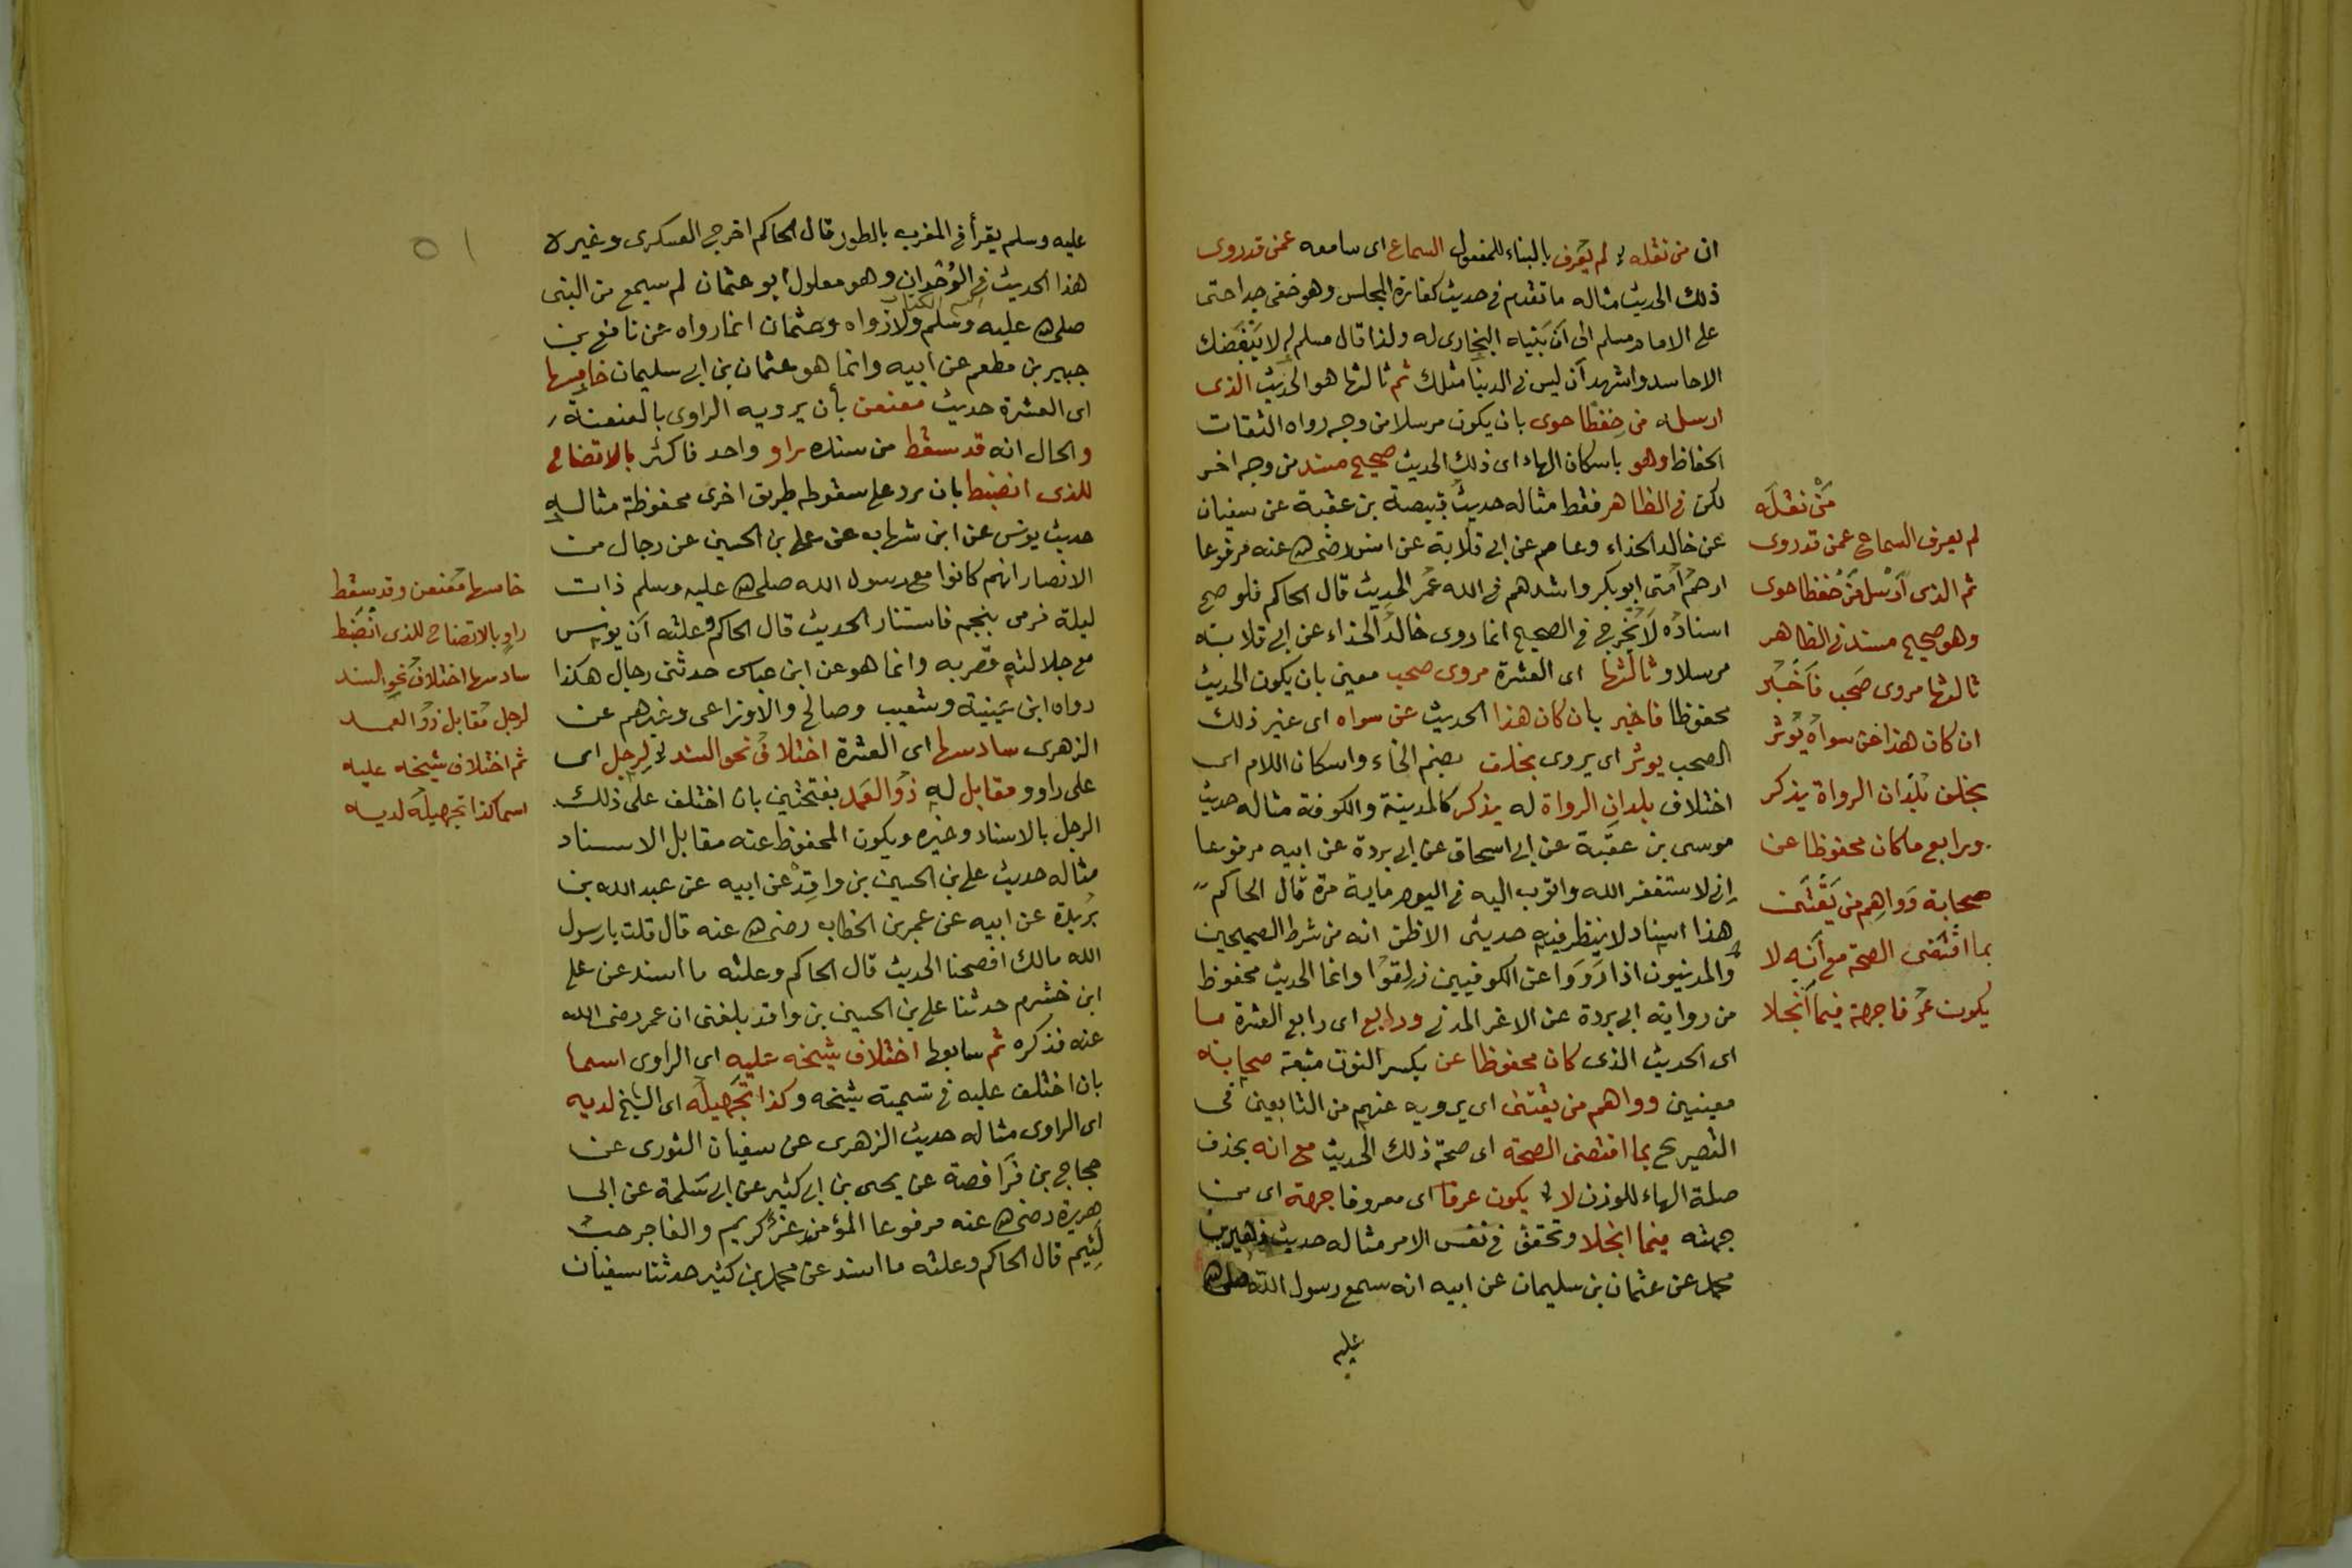 ان من نقله لم يعرف بالبناء للمفعول السماع اى سامعه عمن قد روى
ذلك الحديث مثاله ما تقدم فى حديث كفارة المجلس وهو خفى جدا حتى
على الامام مسلم الى اَن بَيَّناه البخارى له ولذا قال مسلم له لا يَبْغَضك
الا حاسد واشهد اَن ليس فى الدنيا مثلك ثم ثالثها هو الحديث الذى
ارسله من حِفظا حوى بان يكون مرسلا من وجه رواه الثقات
الحفاظ وهو باسكان الهاء اى ذلك الحديث صحيح مسند من وجه اخر
لكن فى الظاهر فقط مثاله حديث قبيصة بن عقبة عن سفيان
عن خالد الحذاء وعاصم عن ابى قلابة عن انس رضى الله عنه مرفوعا
ارحم اُمتى ابو بكر واشدهم فى الله عُمَر الحديث قال الحاكم فلو صح
اسنادُه لَاُخْرِج فى الصحيح انما روى خالدُ الحذاء عن ابى قلابة
مرسلا وثالثها اى العشرة مروى صحب معين بان يكون الحديث
محفوظا فاخبر بان كان هذا الحديث عن سواه اى غير ذلك
الصحب يوثر اى يروى بخلف بضم الخاء واسكان اللام اى
اختلاف بلدانِ الرواة له يذكر كالمدينة والكوفة مثاله حديث
موسى بن عقبة عن ابى اسحاق عن ابى بردة عن ابيه مرفوعا
اِنى لاستغفر الله واتوب اليه فى اليوم ماية مرة قال الحاكم
هذا اسناد لا ينظر فيه حديثى الا ظن انه من شرط الصحيحين
والمدنيون اذا رَوَوا عن الكوفيين زلِقوا وانما الحديث محفوظ
من رواية ابى بردة عن الاغر المدنى ورابع اى رابع العشرة ما
اى الحديث الذى كان محفوظا عن بكسر النون متبعة صحابة
معينين وواهم من يقتنى اى يرويه عنهم من التابعين فى
التصريح بما اقتضى الصحة اى صحة ذلك الحديث مع انه بحذف
صلة الهاء للوزن لا يكون عرفا اى معروفا جهة اى من
جهته فيما انجلا وتحقق فى نفس الامر مثاله حديث زهير بن
محمد عن عثمان بن سليمان عن ابيه انه سمع رسول الله صلى الله
عليه
مَنْ نقله
لم يعرف السماع عمن قد روى
ثم الذى اَرْسل مَن حُفظا حوى
وهو صحيح مسند فى الظاهر
ثالثها مروى صَحب فاَخْبر
ان كان هذا عن سواه يُوثر
بخلف بُلدان الرواة يذكر
ورابع ما كان محفوظا عن
صحابة وَواهِم من يقتنى
بما اقتضى الصحة مع اَنه لا
يكون عُرفا جهة فيما اَنجلا
٥١
عليه وسلم يقرأ فى المغرب بالطور قال الحاكم اخرج العسكرى وغيره
هذا الحديث فى الوُحْدان وهو معلول ابو عثمان لم سيمع من النبى
صلى الله عليه وسلم ولا رواه وعثمان انما رواه عن نافع بن
جبير بن مطعم عن ابيه وانما هو عثمان بن ابى سليمان خامسها
اى العشرة حديث معنعن بأن يرويه الراوى بالعنعنة
والحال انه قد سقط من سنده راو واحد فاكثر بالاتضاح
للذى انضبط بان يرد على سقوطه طريق اخرى محفوظة مثاله
حديث يونس عن ابن شهاب عن على بن الحسين عن رجال من
الانصار انهم كانوا مع رسول الله صلى الله عليه وسلم ذات
ليلة فرمى بنجم فاستنار الحديث قال الحاكم وعلته اَن يونس
مع جلالته قصر به وانما هو عن ابن عباس حدثنى رجال هكذا
رواه ابن عيينة وشعيب وصالح والاوزاعى وغيرهم عن
الزهرى سادسها اى العشرة اختلافُ نحو السند لرجل اى
على راو ومقابل له ذو العَمد بفتحتين بان اختلف على ذلك
الرجل بالاسناد وغيره ويكون المحفوظ عنه مقابل الاسناد
مثاله حديث على بن الحسين بن واقد عن ابيه عن عبد الله بن
بريدة عن ابيه عن عمر بن الخطاب رضى الله عنه قال قلت يا رسول
الله مالك افصحنا الحديث قال الحاكم وعلته ما اسند عن على
ابن خشرم حدثنا على بن الحسين بن واقد بلغنى ان عمر رضى الله
عنه فذكره ثم سابعها اختلاف شيخه عليه اى الراوى اسما
بان اختلف عليه فى تسمية شيخه وكذا تجهيلُه اى الشيخ لديه
اى الراوى مثاله حديث الزهرى عن سفيان الثورى عن
حجاج بن فُرَافصة عن يحيى بن ابى كثير عن ابى سَلمة عن ابى
هريرة رضى الله عنه مرفوعا المؤمن غرٌّ كريم والفاجر خب
لَئِيم قال الحاكم وعلته ما اسند عن محمد بن كثير حدثنا سفيان
خامسها مُعنعن وقد سَقط
راوٍ بالاتضاح للذى انْضَبط
سادسها اختلاف نحو السند
لرجل مُقابل ذُو العمد
ثم اختلاف شيخه عليه
اسما كذا تجهيلُه لديه